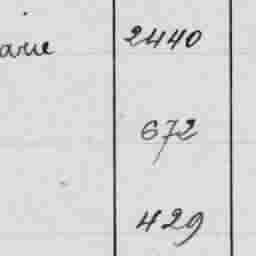 arie 2440
672
429